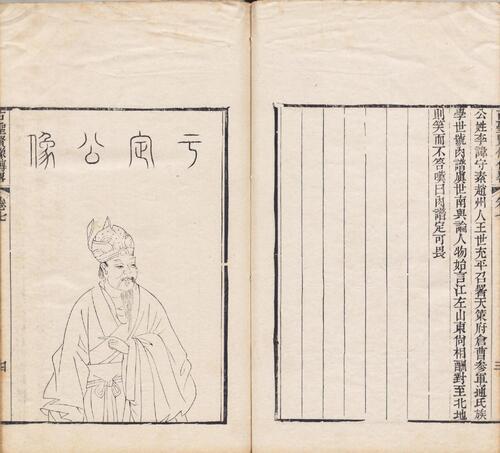 公姓李諱守素趙州人王世充平召署天策府倉曹參軍通氏族
學世號肉譜虞世南與論人物始言江左山東尚相酬對至北地
則笑而不答嘆曰肉譜定可畏
于定公像
古聖賢像傳畧
卷七